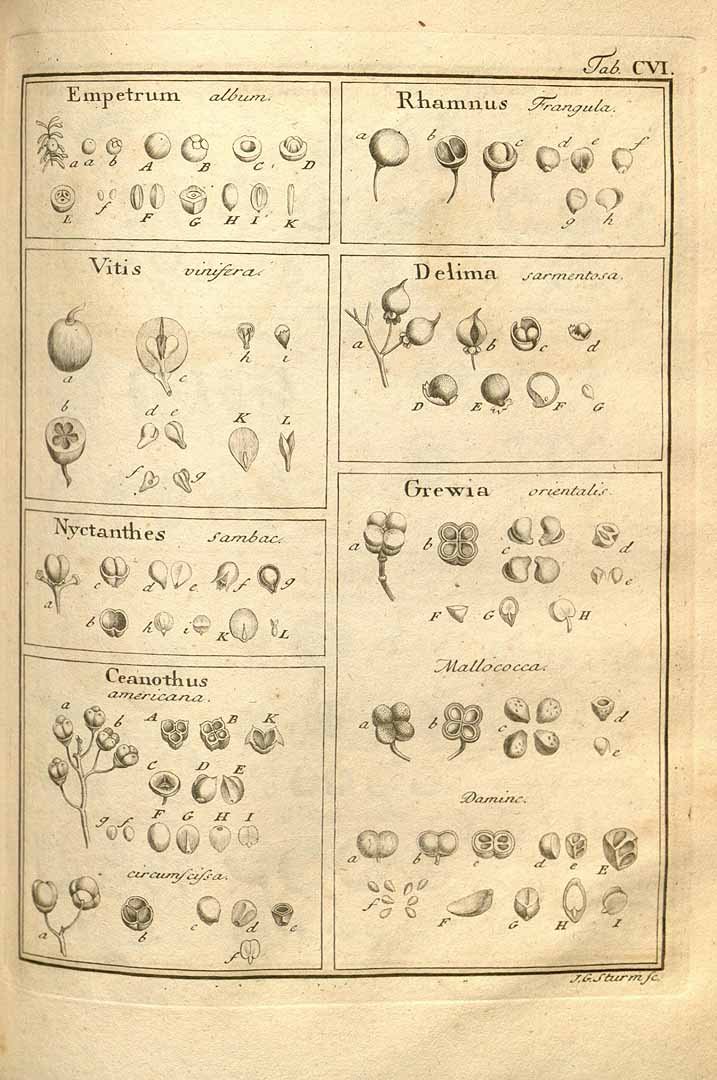 Tab. CVI.
Empetrum album.
a a b A B C D
E f F G H I K
Rhamnus Frangula.
a b c d e f
g h
Vitis vinifera.
a c h i
b d e K L
f g
Delima sarmentosa.
a b c d
D E F G
Nyctanthes sambac.
a c d e f g
b h i K L
Grewia orientalis.
a b c d
e
F G H
Mallococca.
a b c d
e
Damine.
a b c d e E
f F G H I
Ceanothus
americana.
a b A B K
C D E
g f F G H I
circumscissa.
a b c d e
f
J.G.Sturm sc.